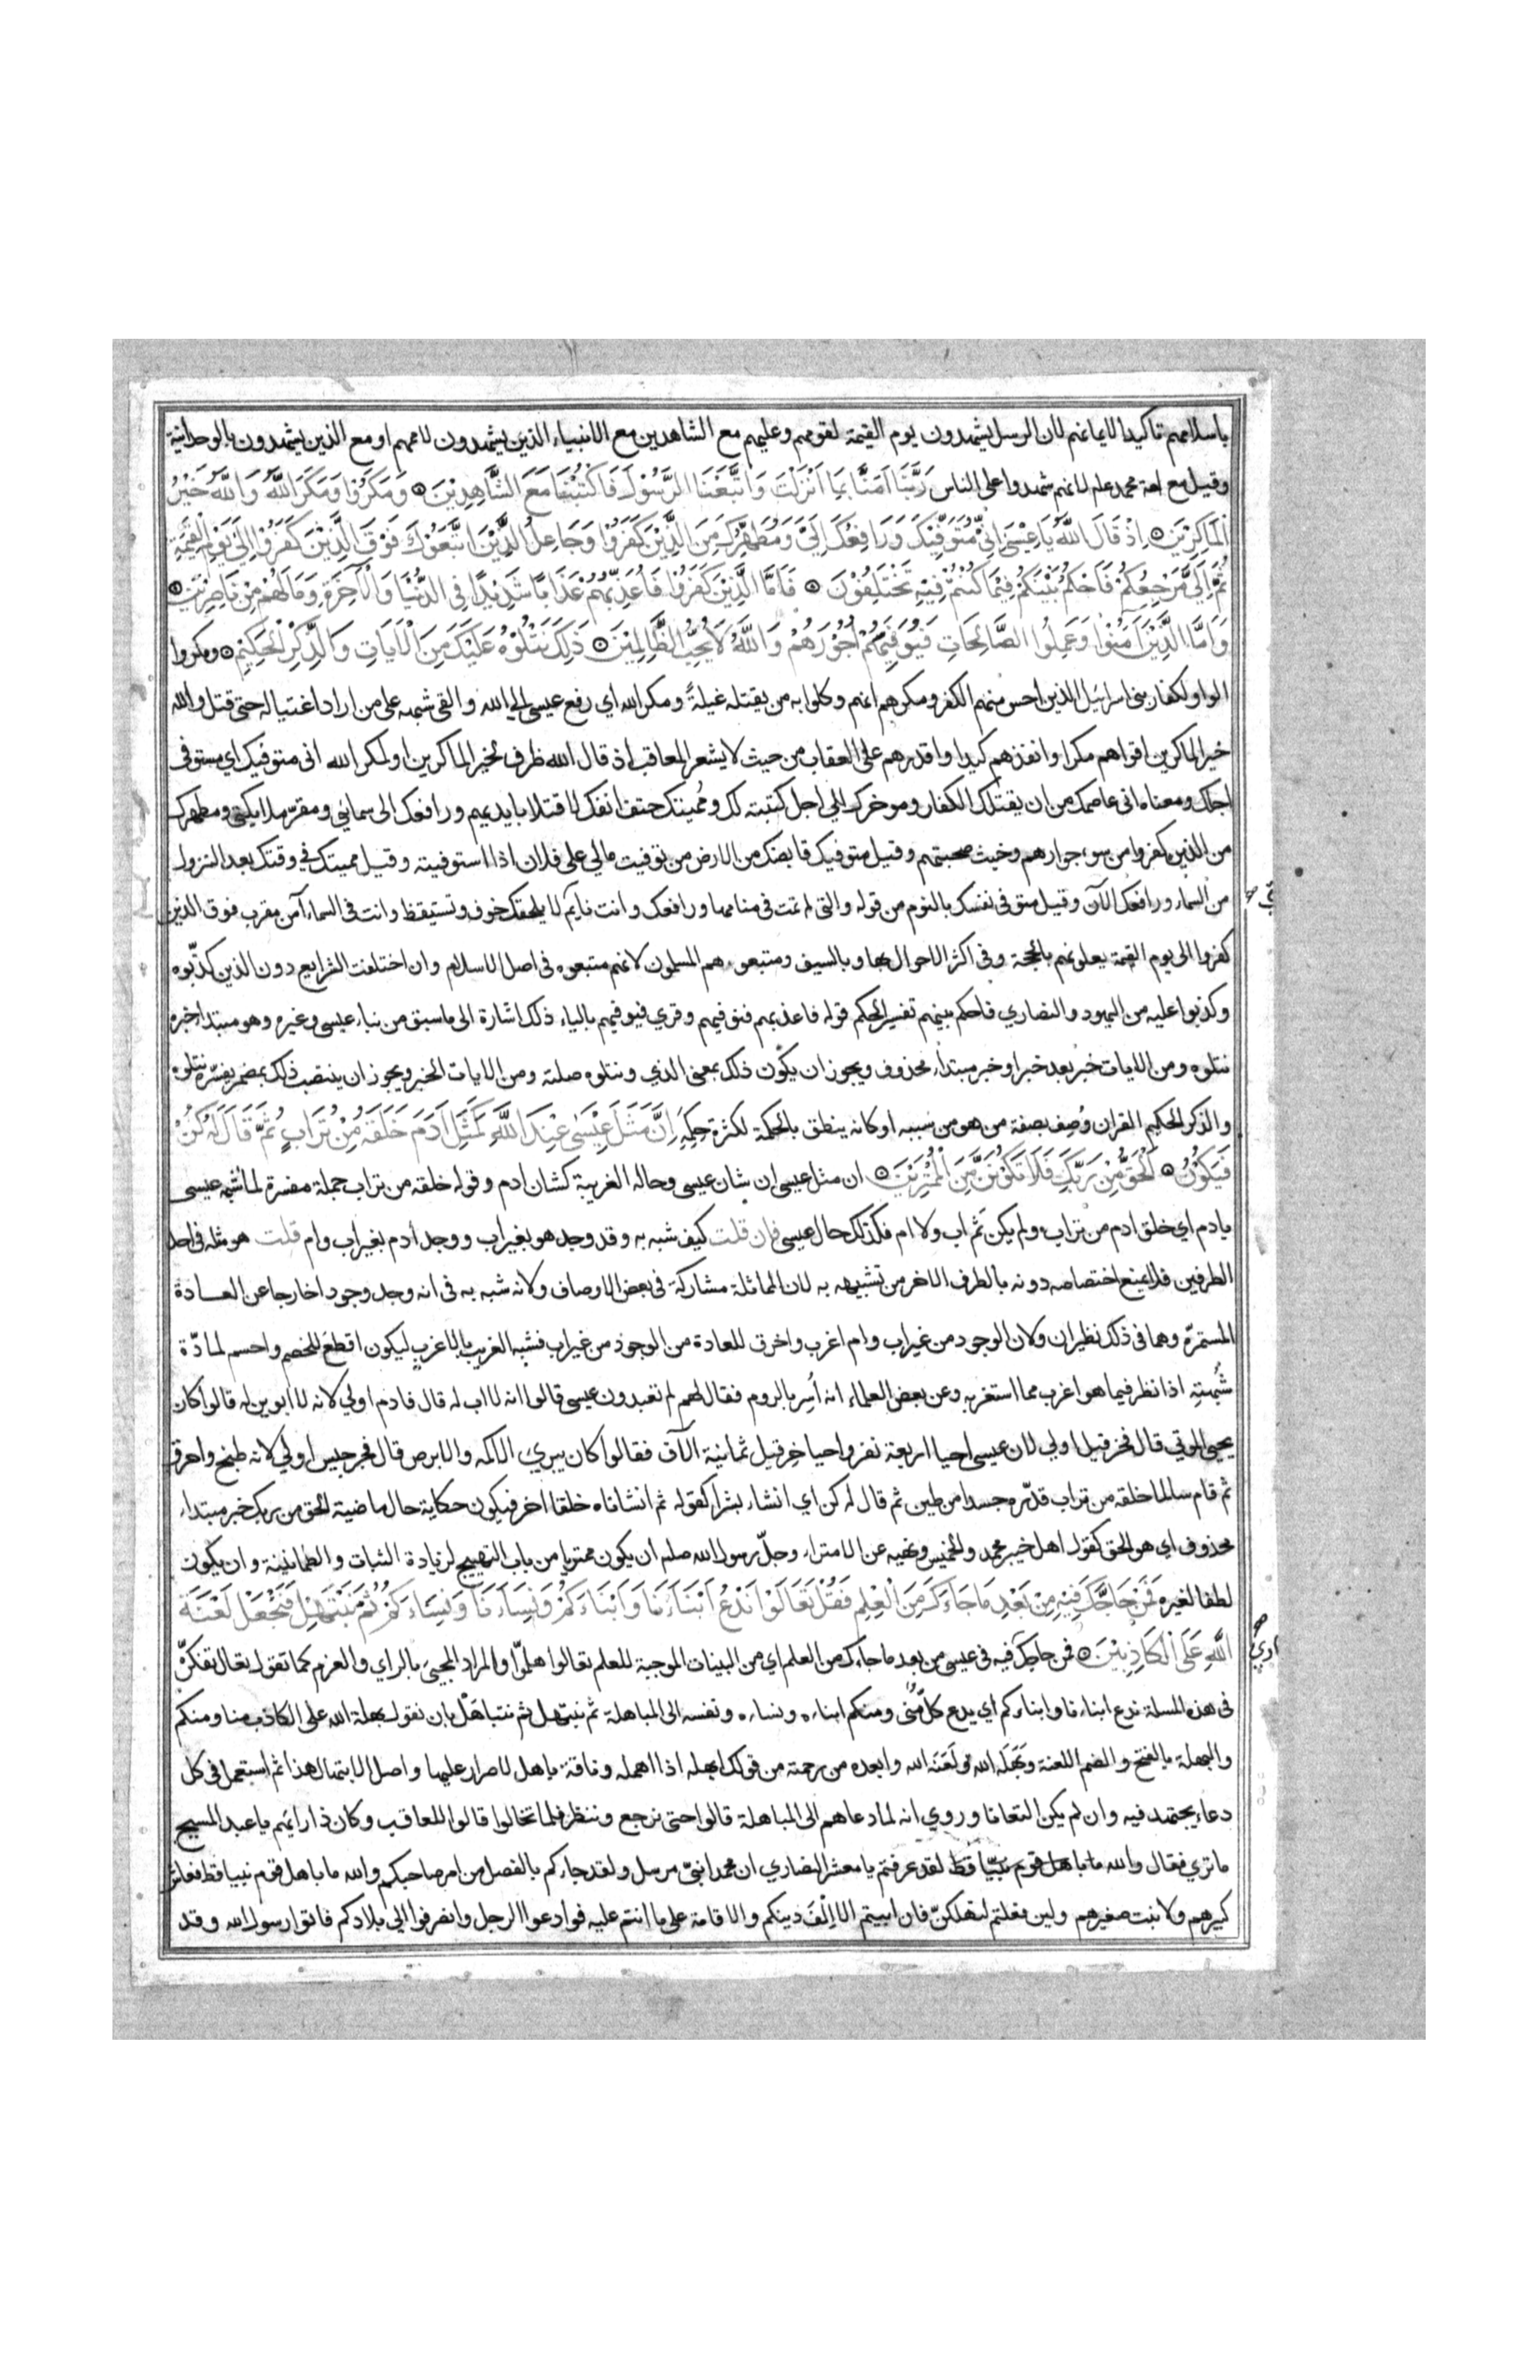 باسلامهم تاكيدا لايمانهم لان الرسل يشهدون يوم القيمة لقومهم وعليهم مع الشاهدين مع الانبياء الذين يشهدون لاممهم او مع الذين يشهدون بالوحدانية
وقيل مع امة محمد علم لانهم شهدوا على الناس رَبَّنَا آمَنَّا بِمَا اَنْزَلْتَ وَاتَّبَعْنَا الرَّسُوْلَ فَاكْتُبْنَا مَعَ الشَّاهِدِيْنَ وَمَكَرُوْا وَمَكَرَ اللَّهُ وَاللَّهُ خَيْرُ
الْمَاكِرِيْنَ اِذْ قَالَ اللَّهُ يَا عِيْسٰى اِنِّىْ مُتَوَفِّيْكَ وَرَافِعُكَ اِلَىَّ وَمُطَهِّرُكَ مِنَ الَّذِيْنَ كَفَرُوْا وَجَاعِلُ الَّذِيْنَ اتَّبَعُوْكَ فَوْقَ الَّذِيْنَ كَفَرُوْا اِلىٰ يَوْمِ الْقِيٰمَةِ
ثُمَّ اِلَىَّ مَرْجِعُكُمْ فَاَحْكُمُ بَيْنَكُمْ فِيْمَا كُنْتُمْ فِيْهِ تَخْتَلِفُوْنَ فَاَمَّا الَّذِيْنَ كَفَرُوْا فَاُعَذِّبُهُمْ عَذَابًا شَدِيْدًا فِى الدُّنْيَا وَالْآخِرَةِ وَمَا لَهُمْ مِنْ نَاصِرِيْنَ
وَاَمَّا الَّذِيْنَ آمَنُوْا وَعَمِلُوا الصَّالِحَاتِ فَيُوَفِّيْهِمْ اُجُوْرَهُمْ وَاللَّهُ لَا يُحِبُّ الظَّالِمِيْنَ ذٰلِكَ نَتْلُوْهُ عَلَيْكَ مِنَ الْآيَاتِ وَالذِّكْرِ الْحَكِيْمِ ومكروا
الواو لكفار بنى اسرائيل الذين احس منهم الكفر ومكرهم انهم وكلوا به من يقتله غيلةً ومكر الله اي رفع عيسى الي الله والقى شبهه على من اراد اغتياله حتى قتل والله
خير الماكرين اقواهم مكرا وانفذهم كيدا واقدرهم على العقاب من حيث لا يشعر المعاقب اذ قال الله ظرف لخير الماكرين او لمكر الله انى متوفيك اي مستوفى
اجلك ومعناه انى عاصمك من ان يقتلك الكفار وموخرك الي اجل كتبته لك ومُميتك حتف انفك لا قتلا بايديهم ورافعك الى سمائي ومقرّ ملايكتي ومطهرك
من الذين كفروا من سوء جوارهم وخبث صحبتهم وقيل متوفيك قابضك من الارض من توفيت مالي على فلان اذا استوفيته وقيل مميتك في وقتك بعد النزول
من السماء ورافعك الآن وقيل متوفى نفسك بالنوم من قوله والتى لم تمت فى منامها ورافعك وانت نايم لا يلحقك خوف وتستيقظ وانت فى السماء آمن مقرب فوق الذين
كفروا الى يوم القيمة يعلونهم بالحجة وفى اكثر الاحوال بها وبالسيف ومتبعوه هم المسلمون لانهم متبعوه فى اصل الاسلام وان اختلفت الشرايع دون الذين كذّبوه
وكذبوا عليه من اليهود والنصاري فاحكم بينهم تفسير الحكم قوله فاعذبهم فنوفيهم وقري فيوفيهم بالياء ذلك اشارة الى ما سبق من نباء عيسى وغيره وهو مبتدا خبره
نتلوه ومن الايات خبر بعد خبر او خبر مبتداء محذوف ويجوز ان يكون ذلك بمعنى الذي ونتلوه صلته ومن الايات الخبر ويجوز ان ينتصب ذلك بمضمر يفسّره نتلوه
والذكر الحكيم القران وُصِف بصفة من هو من سببه او كانه ينطق بالحكمة لكثرة حِكَمِهِ اِنَّ مَثَلَ عِيْسٰى عِنْدَ اللَّهِ كَمَثَلِ آدَمَ خَلَقَهُ مِنْ تُرَابٍ ثُمَّ قَالَ لَهُ كُنْ
فَيَكُوْنُ اَلْحَقُّ مِنْ رَبِّكَ فَلَا تَكُوْنَنَّ مِنَ الْمُمْتَرِيْنَ ان مثل عيسى ان شان عيسى وحاله الغريبة كشان ادم وقوله خلقه من تراب جملة مفسرة لما شُبِّه عيسى
بادم اي خلق ادم من تراب ولم يكن ثَم اب ولا ام فكذلك حال عيسى فان قلت كيف شبه به وقد وجد هو بغير اب ووجد ادم بغير اب وام قلت هو مثله فى احد
الطرفين فلا يمنع اختصاصه دونه بالطرف الاخر من تشبيهه به لان المماثلة مشاركة فى بعض الاوصاف ولانه شبه به فى انه وجد وجودا خارجا عن العادة
المستمرّة وهما فى ذلك نظيران ولان الوجود من غير اب وام اغرب واخرق للعادة من الوجود من غير اب فشبه الغريب بالاغرب ليكون اقطعَ للخصم واحسم لمادّة
شُبهتِهِ اذا نظر فيما هو اغرب مما استغربه وعن بعض العلماء انه اُسِر بالروم فقال لهم لم تعبدون عيسى قالوا انه لا اب له قال فادم اولي لانه لا ابوين له قالوا كان
يحيى الموتي قال فحزقيل اولي لان عيسى احيا اربعة نفر واحيا حزقيل ثمانية الآف فقالوا كان يبري الاكمه والابرص قال فجرجيس اولي لانه طبخ واحرق
ثم قام سالما خلقه من تراب قدّره جسدا من طين ثم قال له كن اي انشاء بشرا كقوله ثم انشاناه خلقا اخر فيكون حكاية حال ماضية الحق من ربك خبر مبتداء
محذوف اي هو الحق كقول اهل خيبر محمد والخميس ونهيه عن الامتراء وجلّ رسول الله صلم ان يكون ممتريا من باب التهييج لزيادة الثبات والطمانينة وان يكون
لطفا لغيره فَمَنْ حَاجَّكَ فِيْهِ مِنْ بَعْدِ مَا جَاءَكَ مِنَ الْعِلْمِ فَقُلْ تَعَالَوْا نَدْعُ اَبْنَاءَنَا وَاَبْنَاءَكُمْ وَنِسَاءَنَا وَنِسَاءَكُمْ ثُمَّ نَبْتَهِلْ فَنَجْعَلْ لَعْنَةَ
اللَّهِ عَلَى الْكَاذِبِيْنَ فمن حاجك فيه فى عيسى من بعد ما جاءك من العلم اي من البينات الموجبة للعلم تعالوا هلمّوا والمراد المجيئ بالراي والعزم كما تقول تعال نفكرّ
فى هذه المسلة ندع ابناءنا وابناءكم اي يدع كلٌّ منّى ومنكم ابناءه ونساءه ونفسه الى المباهلة ثم نبتهل ثم نتباهَلْ بان نقول بهلة الله على الكاذب منا ومنكم
والبهلة بالفتح والضم اللعنة وبَهَلَه الله لَعَنَه الله وابعده من رحمته من قولك ابهله اذا اهمله وناقة باهل لا صرار عليها واصل الابتهال هذا ثم استعمل فى كل
دعاء يجتهد فيه وان لم يكن التعانا وروي انه لما دعاهم الى المباهلة قالوا حتى نرجع وننظر فلما تخالوا قالوا للعاقب وكان ذا رايهم يا عبد المسيح
ما تري فقال والله لقد عرفتم يا معشر النصاري ان محمدا نبىّ مرسل ولقد جاءكم بالفصل من امر صاحبكم والله ما باهل قوم نبيا قط فعاش
كبيرهم ولا نبت صغيرهم ولين فعلتم لتهلكنّ فان ابيتم الا اِلْفَ دينكم والاقامة على ما انتم عليه فوادعوا الرجل وانصرفوا الي بلادكم فاتوا رسول الله وقد